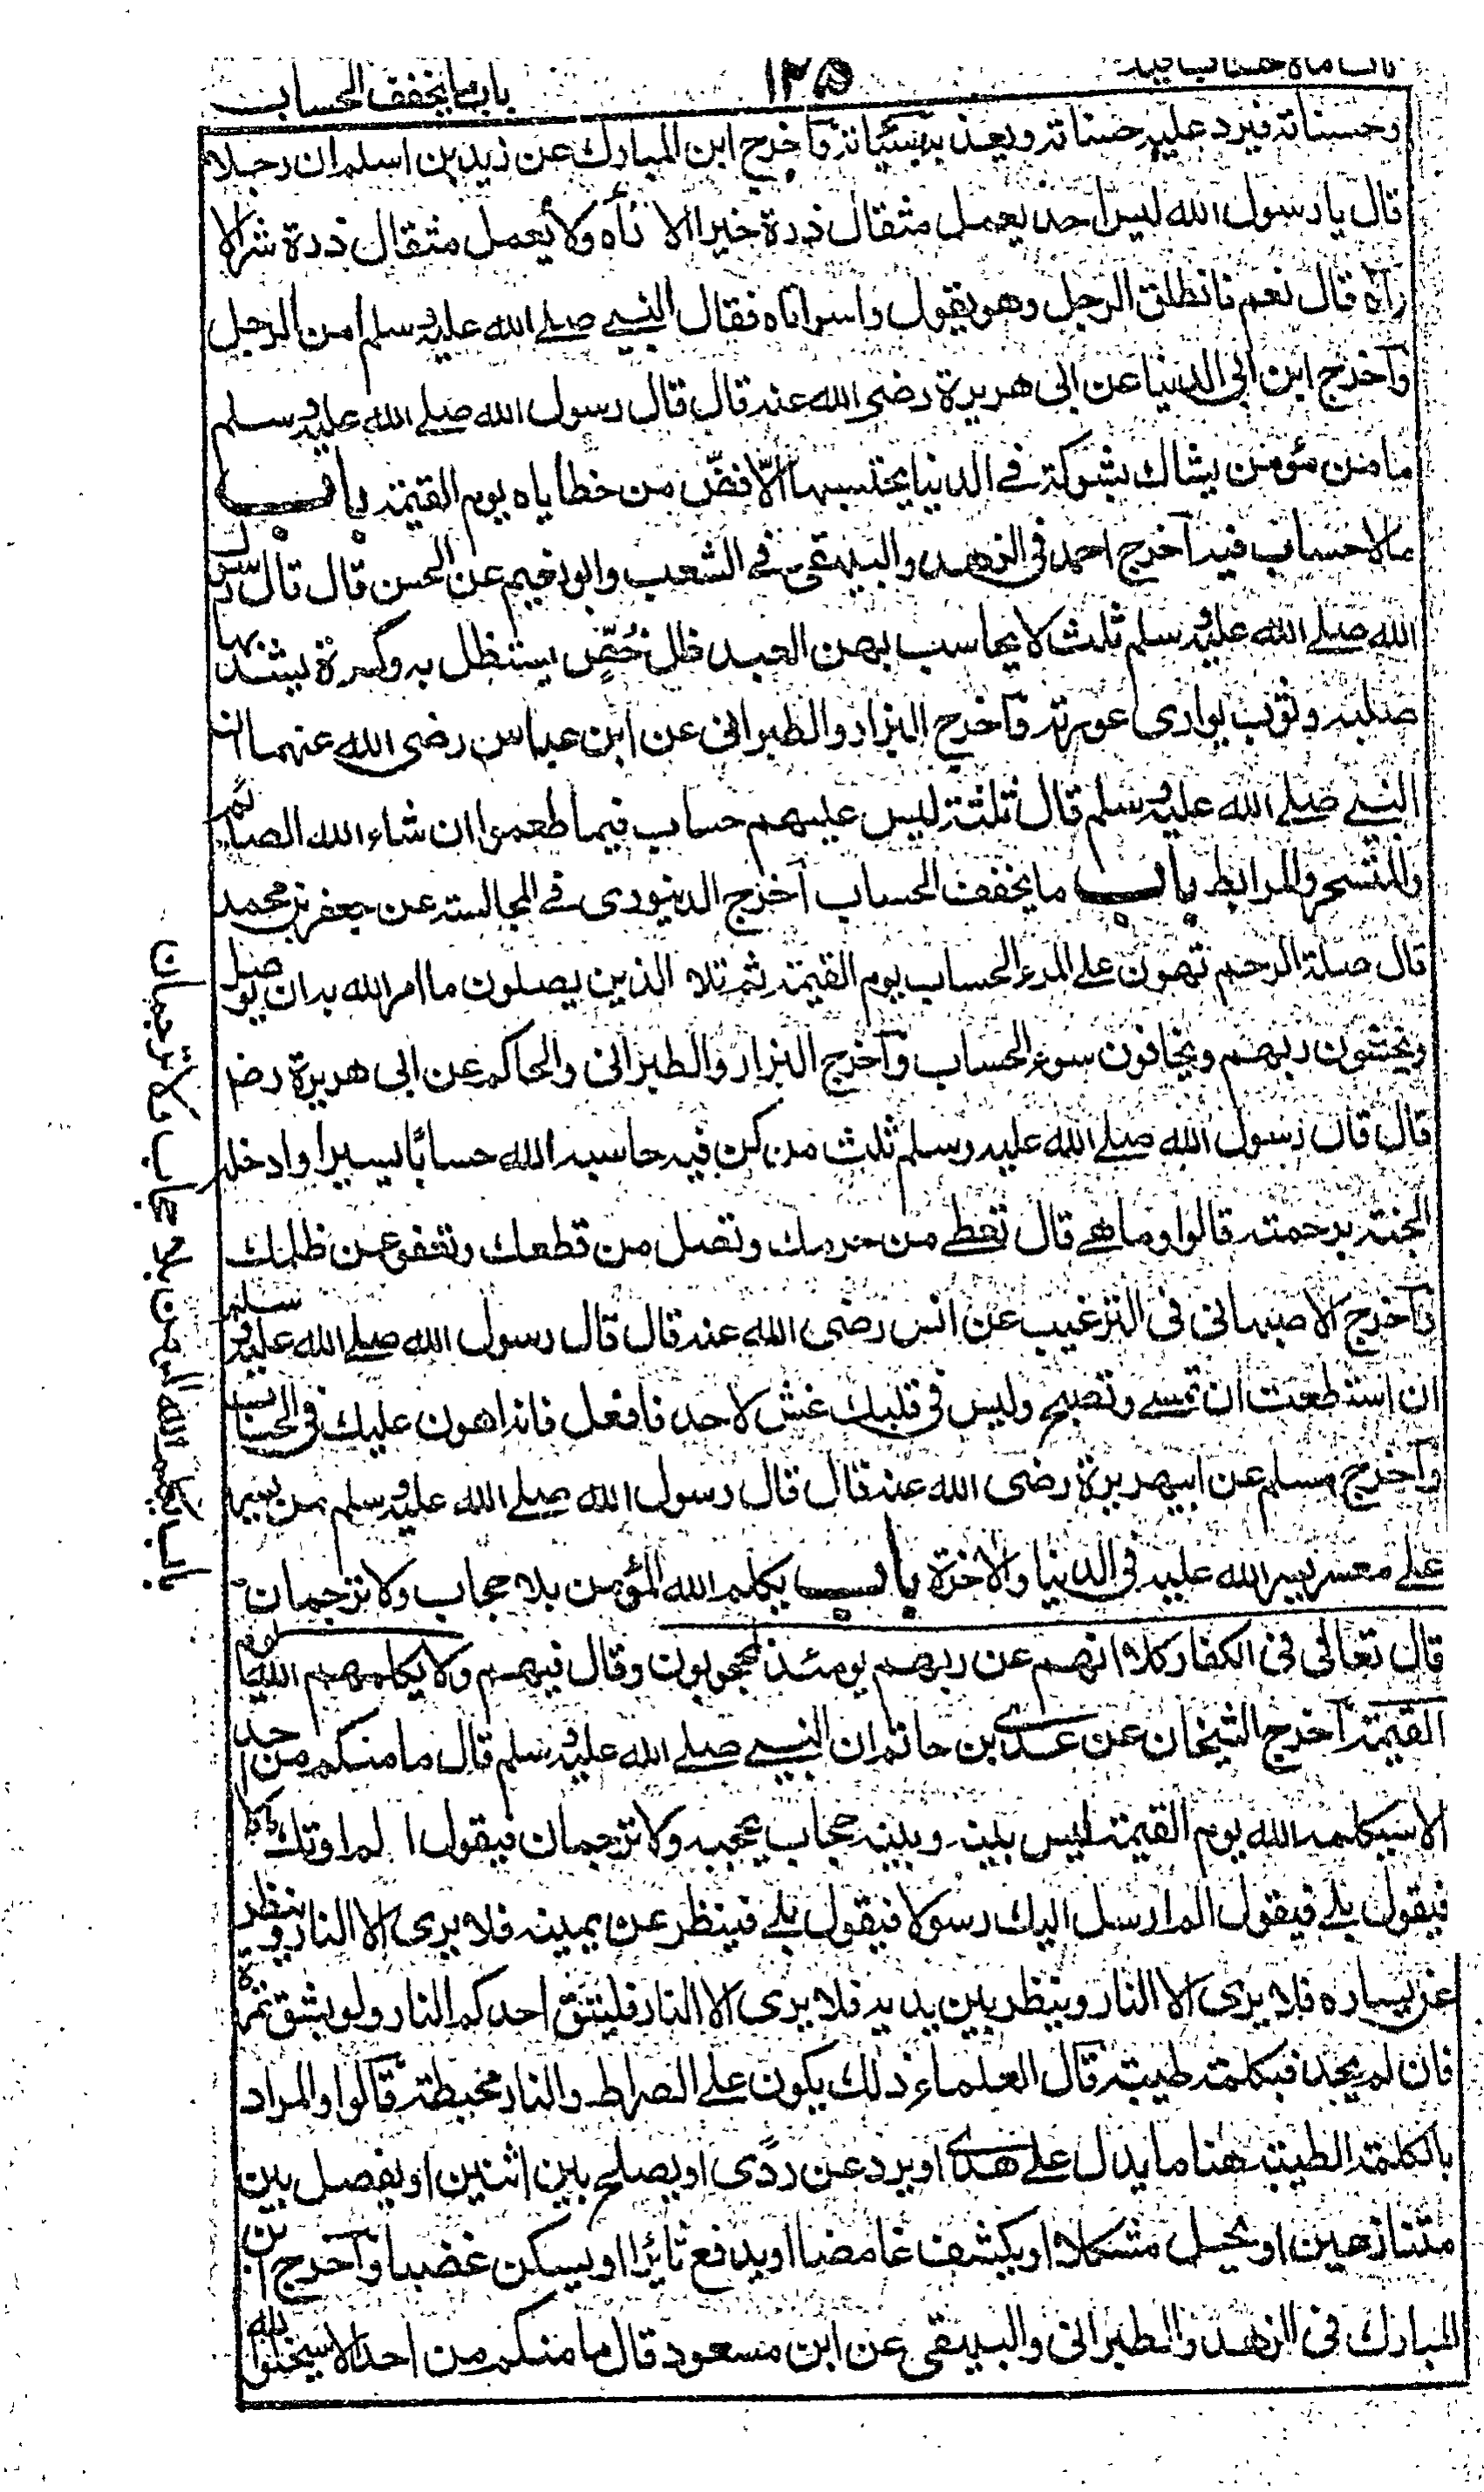 باب مالا حساب فيه
١٢٥
باب ما يخفف الحساب
وحسناته فيرد عليه حسناته ويعذبه بسيئاته وآخرج ابن المبارك عن زيد بن اسلم ان رجلا
قال يا رسول الله ليس احد يعمل مثقال ذرة خيرا الا رأه ولا يعمل مثقال ذرة شرا الا
رأه قال نعم فانطلق الرجل وهو يقول واسوأتاه فقال النبي صلے الله عليه وسلم امن الرجل
وآخرج ابن ابى الدنيا عن ابى هريرة رضى الله عنه قال قال رسول الله صلے الله عليه وسلم
ما من مؤمن يشاك بشوكة فے الدنيا يحتسبها الّا قصّ من خطاياه يوم القيمة باب
مالا حساب فيه آخرج احمد فى الزهد والبيهقى فے الشعب وابو نعيم عن الحسن قال قال رسول
الله صلے الله عليه وسلم ثلث لا يحاسب بهن العبد ظل خُصٍّ يستظل به وكسرة يشد بها
صلبه وثوب يوارى عورته وآخرج البزار والطبرانى عن ابن عباس رضى الله عنهما ان
النبے صلے الله عليه وسلم قال ثلثة ليس عليهم حساب فيما طعموا ان شاء الله الصائم
والمتسحر والمرابط باب ما يخفف الحساب آخرج الدينورى فے المجالسة عن جعفر بن محمد
قال صلة الرحم تهون علے المرء الحساب يوم القيمة ثم تلا الذين يصلون ما امر الله به ان يوصل
ويخشون ربهم ويخافون سوء الحساب وآخرج البزار والطبرانى والحاكم عن ابى هريرة رضـ
قال قال رسول الله صلے الله عليه وسلم ثلث من كن فيه حاسبه الله حسابًا يسيرا وادخله
الجنة برحمته قالوا وما هے قال تعطے من حرمك وتصل من قطعك وتعفو عمن ظلمك
وآخرج الاصبهانى فى الترغيب عن انس رضى الله عنه قال قال رسول الله صلے الله عليه وسلم
ان استطعت ان تمسے وتصبح وليس فى قلبك غش لاحد فافعل فانه اهون عليك فى الحساب
وآخرج مسلم عن ابيهريرة رضى الله عنه قال قال رسول الله صلے الله عليه وسلم من يسر
علے معسر يسر الله عليه فى الدنيا والاخرة باب يكلم الله المؤمن بلا حجاب ولا ترجمان
قال تعالى فى الكفار كلا انهم عن ربهم يومئذ لمحجوبون وقال فيهم ولا يكلمهم الله يوم
القيمة آخرج الشيخان عن عدى بن حاتم ان النبے صلے الله عليه وسلم قال ما منكم من احد
الا سيكلمه الله يوم القيمة ليس بينه وبينه حجاب يحجبه ولا ترجمان فيقول الم اوتك مالا
فيقول بلے فيقول الم ارسل اليك رسولا فيقول بلے فينظر عن يمينه فلا يرى الا النار وينظر
عن يساره فلا يرى الا النار وينظر بين يديه فلا يرى الا النار فليتق احدكم النار ولو بشق تمرة
فان لم يجد فبكلمة طيبة قال العلماء ذلك يكون علے الصراط والنار محيطة قالوا والمراد
بالكلمة الطيبة هنا ما يدل علے هدى او يرد عن ردًى او يصلح بين اثنين او يفصل بين
متنازعين او يحل مشكلا او يكشف غامضا او يدفع ثائرا او يسكن غضبا وآخرج ابن
المبارك فى الزهد والطبرانى والبيهقى عن ابن مسعود قال ما منكم من احد الا سيخلو الله
باب يكلم الله المؤمن بلا حجاب ولا ترجمان